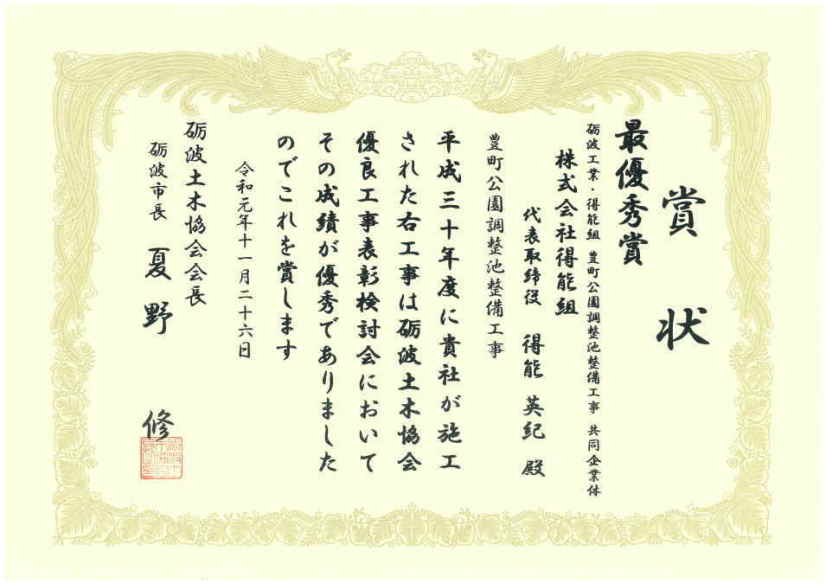 賞状
最優秀賞
砺波工業・得能組 豊町公園調整池整備工事 共同企業体
株式会社得能組
代表取締役 得能 英紀 殿
豊町公園調整池整備工事
平成三十年度に貴社が施工
された右工事は砺波土木協会
優良工事表彰検討会において
その成績が優秀でありました
のでこれを賞します
令和元年十一月二十六日
砺波土木協会会長
砺波市長 夏野 修